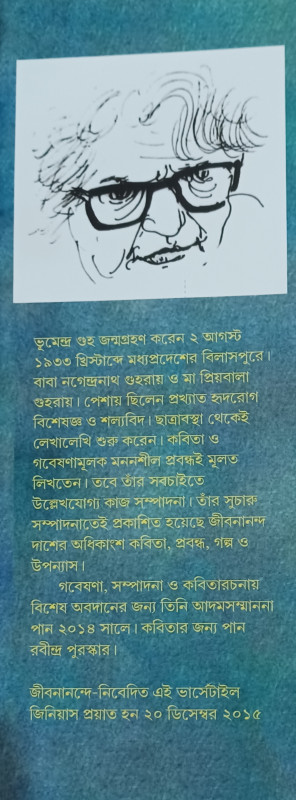 ভূমেন্দ্র গুহ জন্মগ্রহণ করেন ২ আগস্ট
১৯৩৩ খ্রিস্টাব্দে মধ্যপ্রদেশের বিলাসপুরে।
বাবা নগেন্দ্রনাথ গুহরায় ও মা প্রিয়বালা
গুহরায়। পেশায় ছিলেন প্রখ্যাত হৃদরোগ
বিশেষজ্ঞ ও শল্যবিদ। ছাত্রাবস্থা থেকেই
লেখালেখি শুরু করেন। কবিতা ও
গবেষণামূলক মননশীল প্রবন্ধই মূলত
লিখতেন। তবে তাঁর সবচাইতে
উল্লেখযোগ্য কাজ সম্পাদনা। তাঁর সুচারু
সম্পাদনাতেই প্রকাশিত হয়েছে জীবনানন্দ
দাশের অধিকাংশ কবিতা, প্রবন্ধ, গল্প ও
উপন্যাস।
গবেষণা, সম্পাদনা ও কবিতারচনায়
বিশেষ অবদানের জন্য তিনি আদমসম্মাননা
পান ২০১৪ সালে। কবিতার জন্য পান
রবীন্দ্র পুরস্কার।
জীবনানন্দে-নিবেদিত এই ভার্সেটাইল
জিনিয়াস প্রয়াত হন ২০ ডিসেম্বর ২০১৫